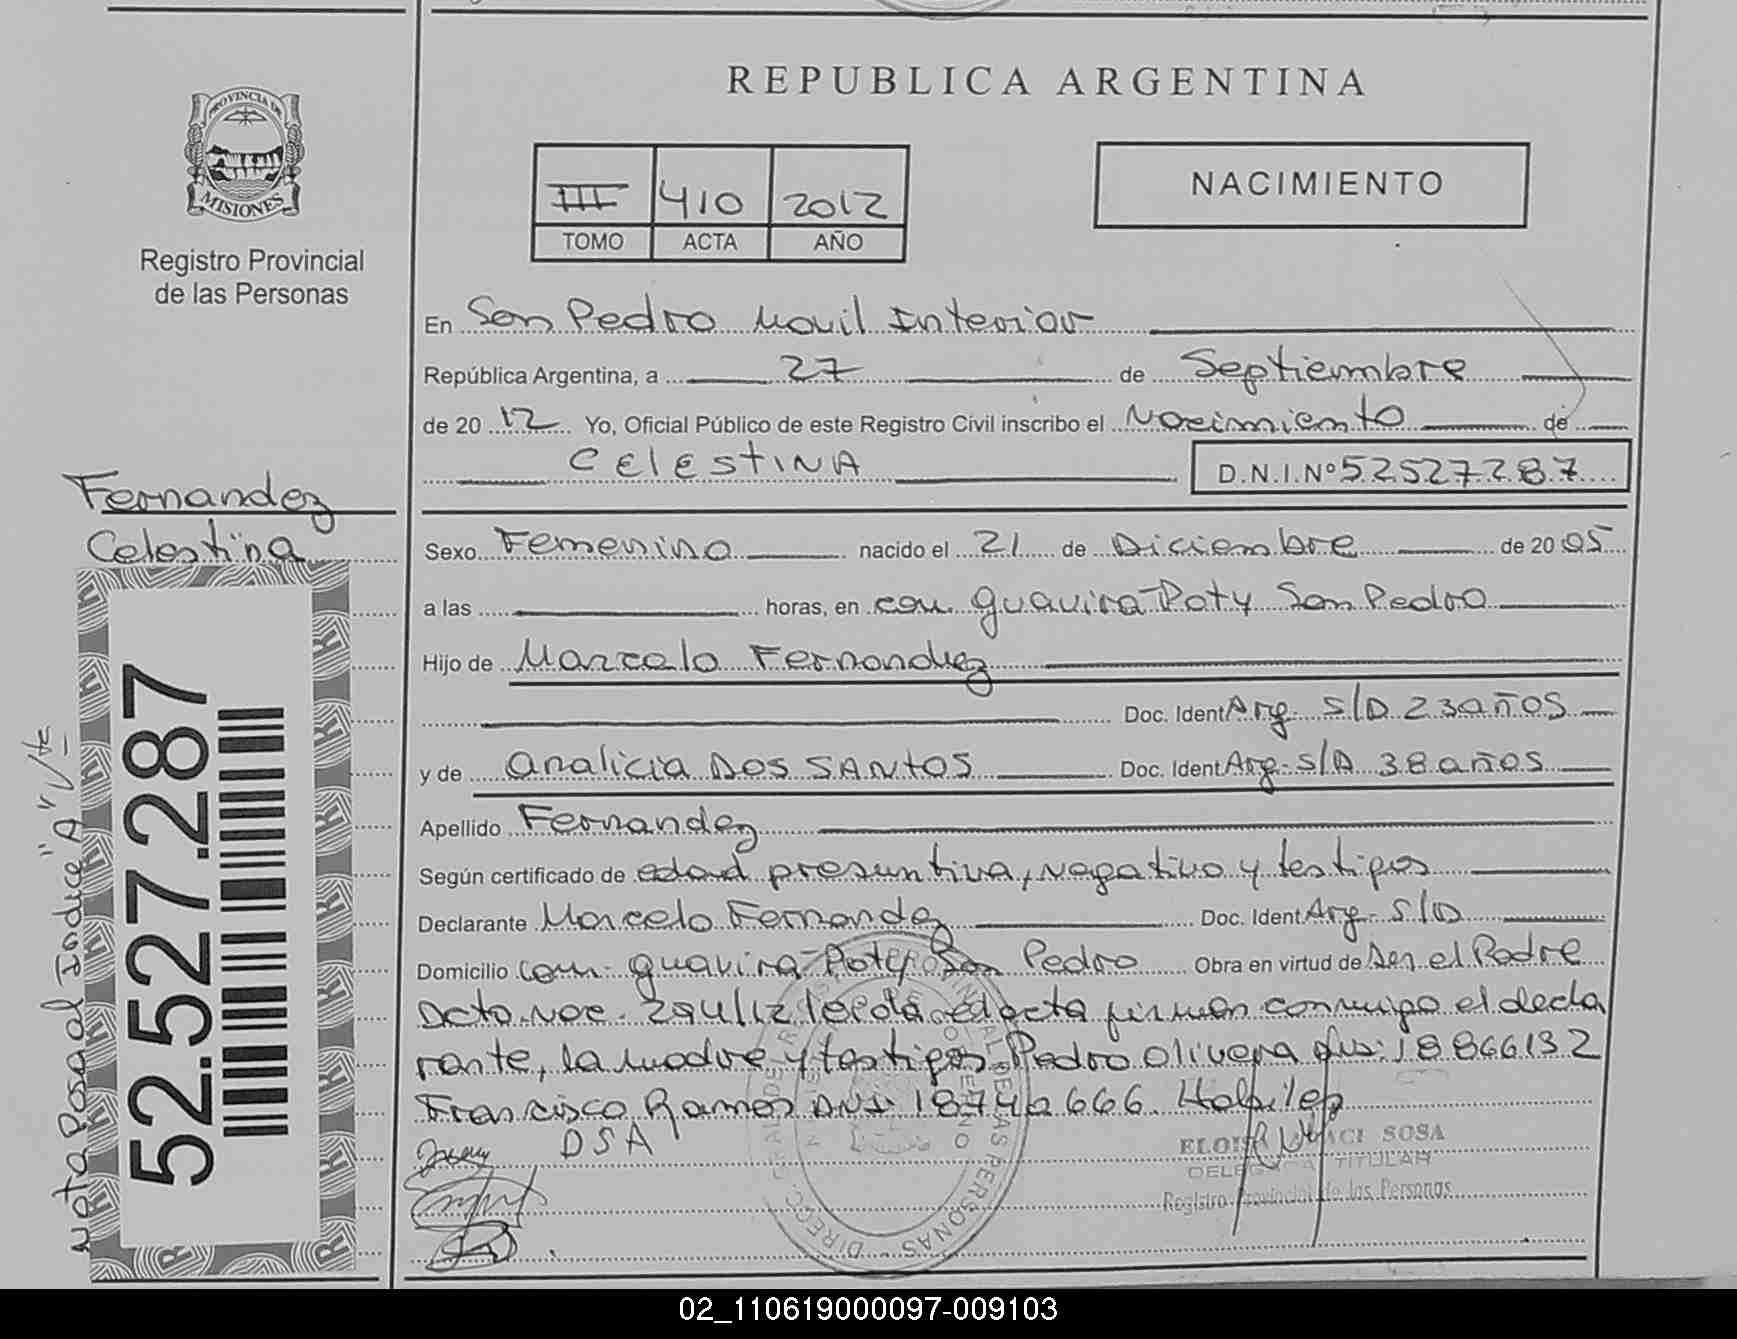 REPUBLICA ARGENTINA
PROVINCIA DE
MISIONES
Registro Provincial
de las Personas
III 410 2012
TOMO ACTA AÑO
NACIMIENTO
En San Pedro Movil Interior
República Argentina, a 27 de Septiembre
de 2012 Yo, Oficial Público de este Registro Civil inscribo el Nacimiento de
CELESTINA
D.N.I.Nº 52527287
Fernandez
Celestina
Sexo Femenino nacido el 21 de Diciembre de 2005
a las horas, en com. guavira-Poty San Pedro
Hijo de Marcelo Fernandez
Doc. Ident Arg. S/D 23 años
y de analicia Dos SANTOS Doc. Ident Arg. S/D 38 años
Apellido Fernandez
Según certificado de edad presuntiva, negativo y testigos
Declarante Marcelo Fernandez Doc. Ident Arg. S/D
Domicilio com. guavira-Poty San Pedro Obra en virtud de Ser el Padre
Dcto. Nac. 294/12 leida el acta firman conmigo el decla
rante, la madre y testigos Pedro Olivera 18866132
Francisco Ramos DNI 18740666.
DSA
ELOISA SOSA
DELEGADA TITULAR
Registro Provincial de las Personas
52.527.287
Nota Posa al Indice "A"
02_110619000097-009103